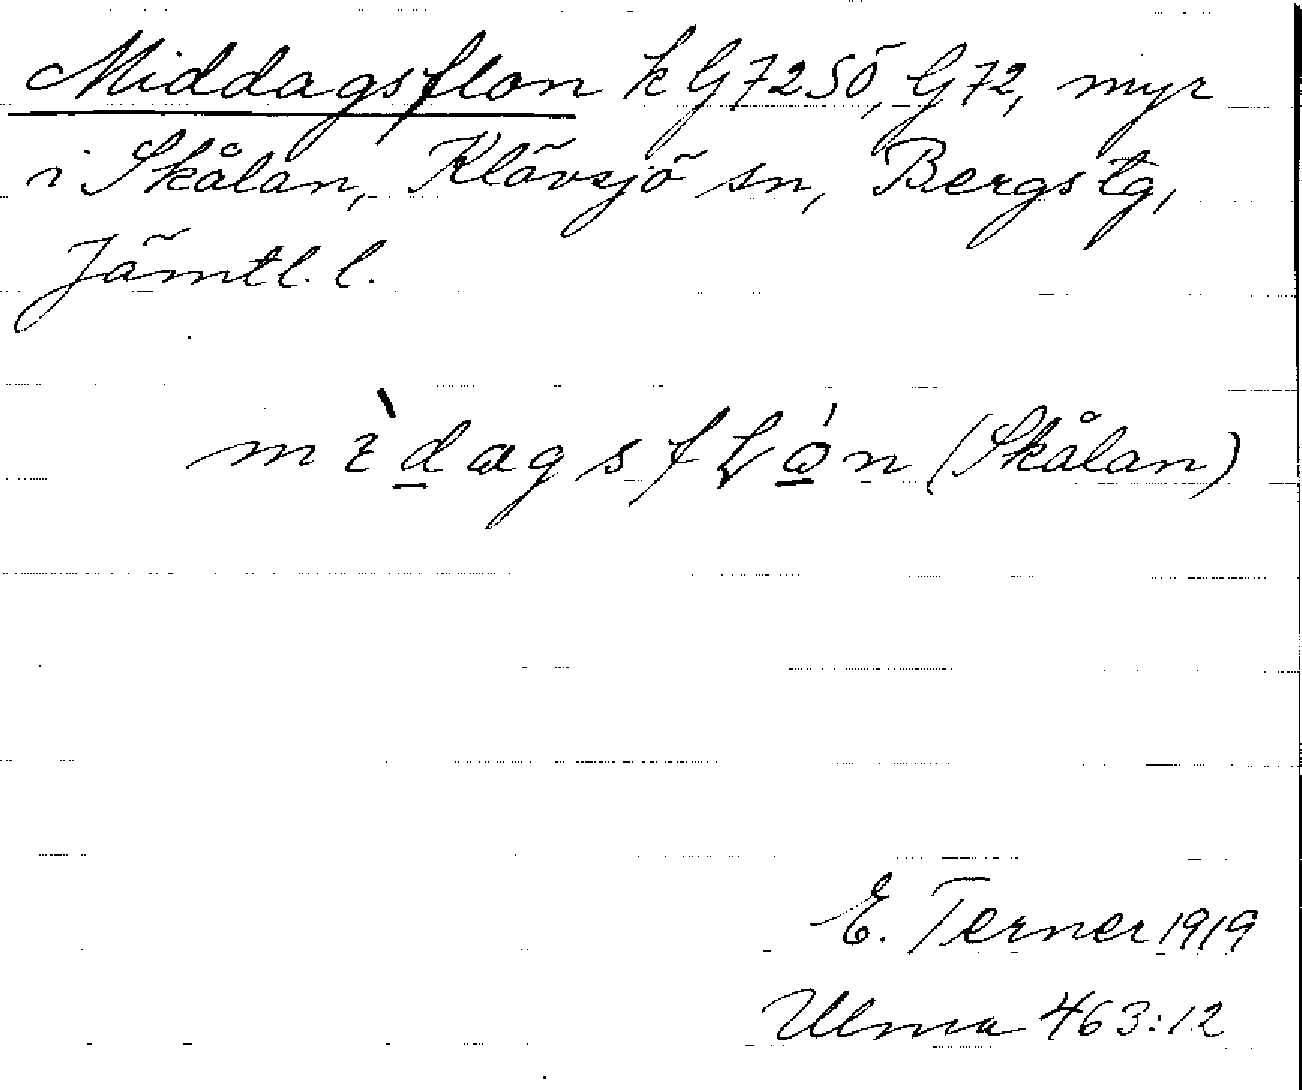 Middagsflon k G72SÖ, G72, myr
i Skålan, Klövsjö sn, Bergs tg,
Jämtl. l.
(Skålan)
E. Terner 1919
Ulma 463:12